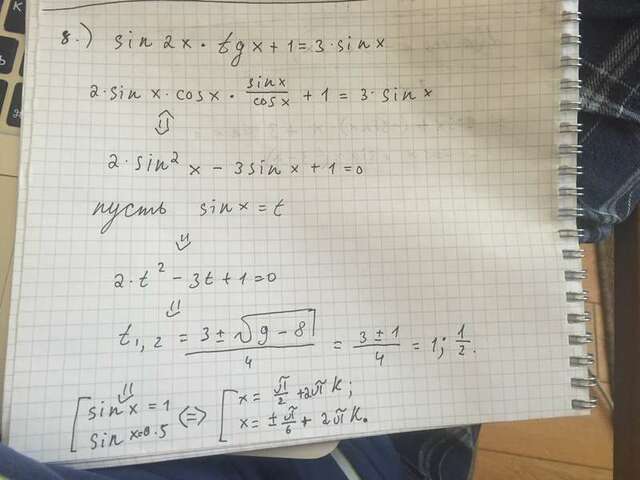 8.) sin 2x · tg x + 1 = 3 · sin x
2 · sin x · cos x · sin x / cos x + 1 = 3 · sin x
⇕
2 · sin² x − 3 sin x + 1 = 0
пусть sin x = t
⇓
2 · t² − 3t + 1 = 0
⇓
t₁,₂ = (3 ± √(9 − 8)) / 4 = (3 ± 1) / 4 = 1; 1/2.
⇓
[ sin x = 1 ⇔ [ x = π/2 + 2πk;
sin x = 0.5 x = ± π/6 + 2πk.